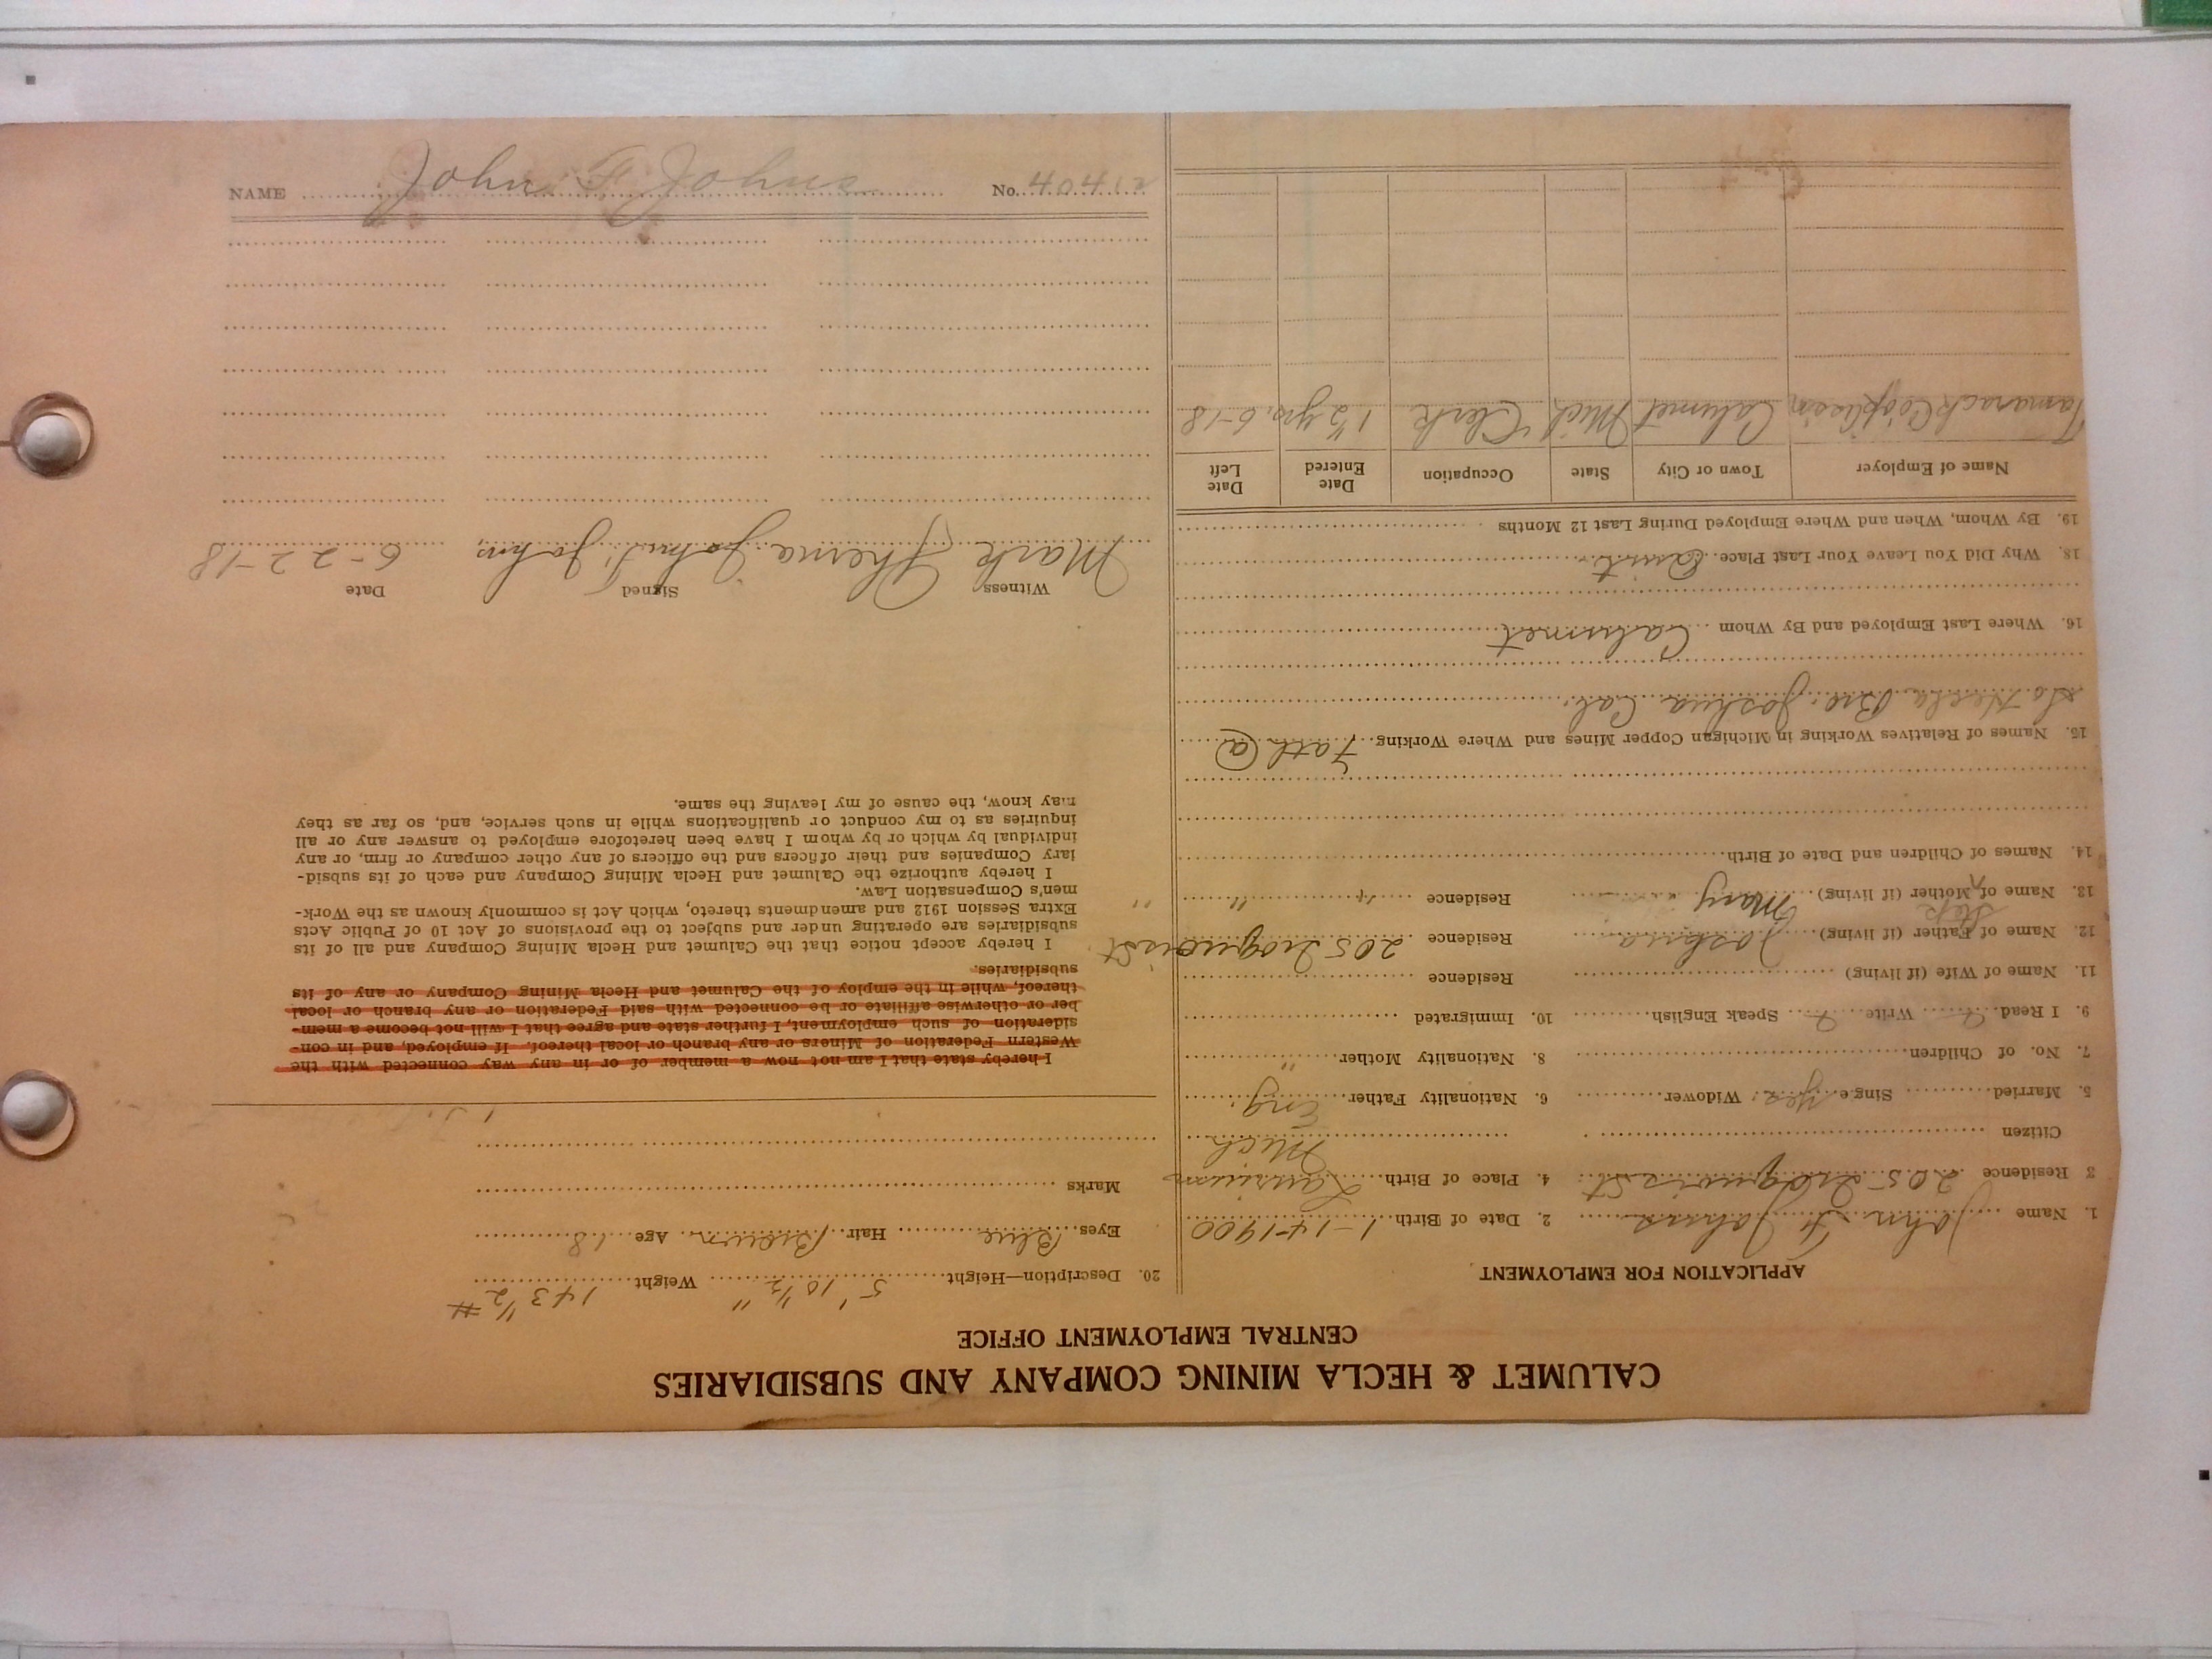 CALUMET & HECLA MINING COMPANY AND SUBSIDIARIES
CENTRAL EMPLOYMENT OFFICE
APPLICATION FOR EMPLOYMENT
1. Name John F. Johns 2. Date of Birth 1-14-1900
3 Residence 205 Iroquois St. 4. Place of Birth Laurium
Mich
Citizen
5. Married Single yes Widower 6. Nationality Father Eng.
7. No. of Children 8. Nationality Mother "
9. I Read Write Speak English 10. Immigrated
11. Name of Wife (if living) Residence
12. Name of Father (if living) Joshua Residence 205 Iroquois St
Step
13. Name of ^ Mother (if living) Mary Residence " " "
14. Names of Children and Date of Birth
15. Names of Relatives Working in Michigan Copper Mines and Where Working Fath @
So Hecla Bro. Joshua Cal.
16. Where Last Employed and By Whom Calumet
18. Why Did You Leave Your Last Place. Quit.
19. By Whom, When and Where Employed During Last 12 Months
Name of Employer Town or City State Occupation Date Entered Date Left
Tamarack Calumet Mich Clerk 1 1/2 yrs. 6-18
20. Description—Height 5' 10 1/2" Weight 143 1/2 #
Eyes Blue Hair Brown Age 18
Marks
I hereby state that I am not now a member of or in any way connected with the
Western Federation of Miners or any branch or local thereof. If employed, and in con-
sideration of such employment, I further state and agree that I will not become a mem-
ber or otherwise affiliate or be connected with said Federation or any branch or local
thereof, while in the employ of the Calumet and Hecla Mining Company or any of its
subsidiaries.
I hereby accept notice that the Calumet and Hecla Mining Company and all of its
subsidiaries are operating under and subject to the provisions of Act 10 of Public Acts
Extra Session 1912 and amendments thereto, which Act is commonly known as the Work-
men's Compensation Law.
I hereby authorize the Calumet and Hecla Mining Company and each of its subsid-
iary Companies and their officers and the officers of any other company or firm, or any
individual by which or by whom I have been heretofore employed to answer any or all
inquiries as to my conduct or qualifications while in such service, and, so far as they
may know, the cause of my leaving the same.
Witness Signed Date
Mark John F. Johns, 6-22-18
NAME John F Johns No. 40412